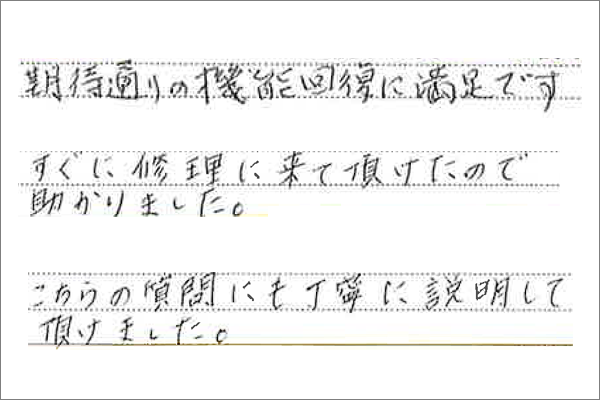 期待通りの機能回復に満足です
すぐに修理に来て頂けたので
助かりました。
こちらの質問にも丁寧に説明して
頂けました。